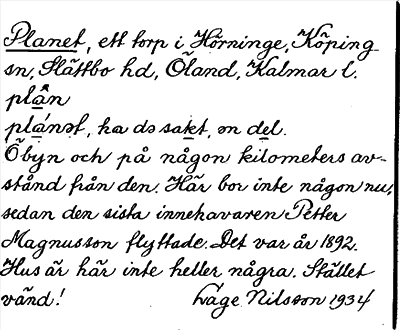 Planet, ett torp i Hörninge, Köping
sn, Slättbo hd, Öland, Kalmar l.
plân
plánət, ha də sakt, ən del.
Öbyn och på någon kilometers av-
stånd från den. Här bor inte någon nu,
sedan den sista innehavaren Petter
Magnusson flyttade. Det var år 1892.
Hus är här inte heller några. Stället
vänd! Låge Nilsson 1934